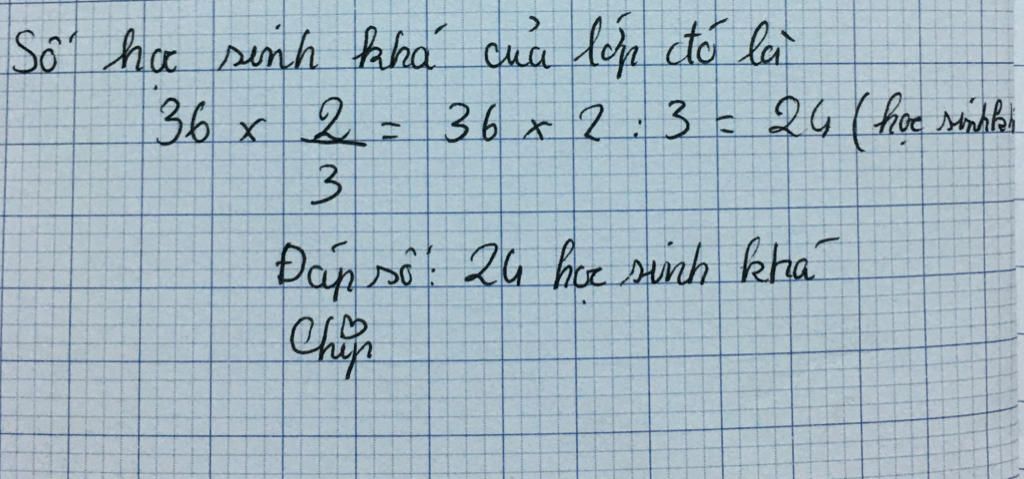 Số học sinh khá của lớp đó là
36 × 2/3 = 36 × 2 : 3 = 24 (học sinh kh
Đáp số: 24 học sinh khá
Chip